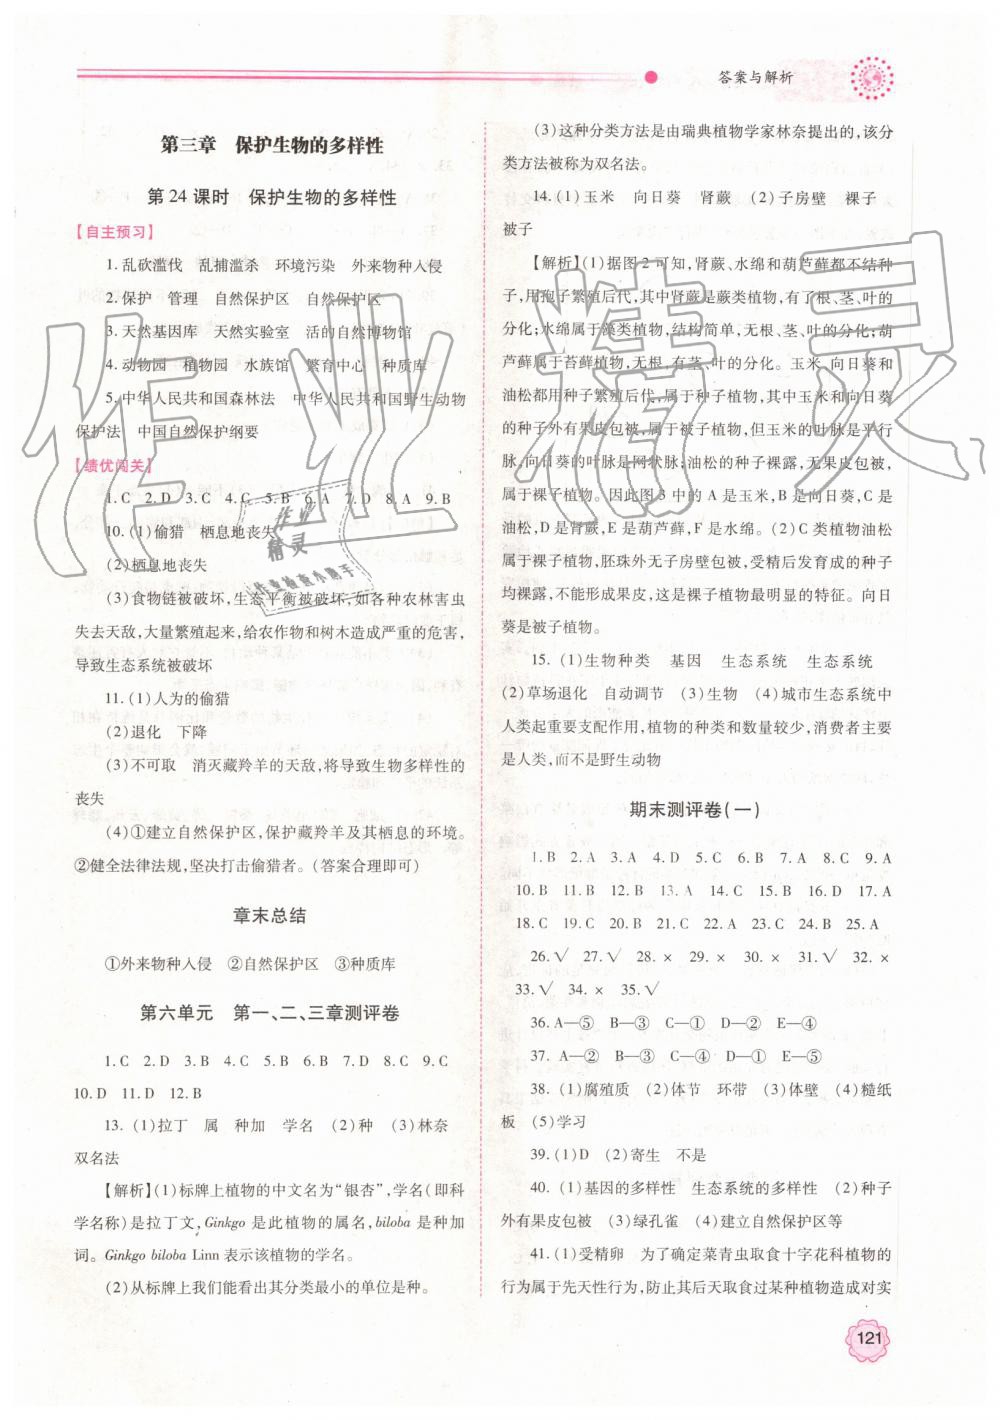 答案与解析
第三章 保护生物的多样性
第24课时 保护生物的多样性
【自主预习】
1. 乱砍滥伐 乱捕滥杀 环境污染 外来物种入侵
2. 保护 管理 自然保护区 自然保护区
3. 天然基因库 天然实验室 活的自然博物馆
4. 动物园 植物园 水族馆 繁育中心 种质库
5. 中华人民共和国森林法 中华人民共和国野生动物
保护法 中国自然保护纲要
【绩优闯关】
1. C 2. D 3. C 4. C 5. B 6. A 7. D 8. A 9. B
10. (1)偷猎 栖息地丧失
(2)栖息地丧失
(3)食物链被破坏,生态平衡被破坏,如各种农林害虫
失去天敌,大量繁殖起来,给农作物和树木造成严重的危害,
导致生态系统被破坏
11. (1)人为的偷猎
(2)退化 下降
(3)不可取 消灭藏羚羊的天敌,将导致生物多样性的
丧失
(4)①建立自然保护区,保护藏羚羊及其栖息的环境。
②健全法律法规,坚决打击偷猎者。(答案合理即可)
章末总结
①外来物种入侵 ②自然保护区 ③种质库
第六单元 第一、二、三章测评卷
1. C 2. D 3. B 4. C 5. B 6. B 7. D 8. C 9. C
10. D 11. D 12. B
13. (1)拉丁 属 种加 学名 (2)种 (3)林奈
双名法
【解析】(1)标牌上植物的中文名为“银杏”,学名(即科
学名称)是拉丁文,Ginkgo 是此植物的属名,biloba 是种加
词。Ginkgo biloba Linn 表示该植物的学名。
(2)从标牌上我们能看出其分类最小的单位是种。
(3)这种分类方法是由瑞典植物学家林奈提出的,该分
类方法被称为双名法。
14. (1)玉米 向日葵 肾蕨 (2)子房壁 裸子
被子
【解析】(1)据图 2 可知,肾蕨、水绵和葫芦藓都不结种
子,用孢子繁殖后代,其中肾蕨是蕨类植物,有了根、茎、叶的
分化;水绵属于藻类植物,结构简单,无根、茎、叶的分化;葫
芦藓属于苔藓植物,无根,有茎、叶的分化。玉米、向日葵和
油松都用种子繁殖后代,属于种子植物,其中玉米和向日葵
的种子外有果皮包被,属于被子植物,但玉米的叶脉是平行
脉,向日葵的叶脉是网状脉;油松的种子裸露,无果皮包被,
属于裸子植物。因此图 3 中的 A 是玉米,B 是向日葵,C 是
油松,D 是肾蕨,E 是葫芦藓,F 是水绵。(2)C 类植物油松
属于裸子植物,胚珠外无子房壁包被,受精后发育成的种子
均裸露,不能形成果皮,这是裸子植物最明显的特征。向日
葵是被子植物。
15. (1)生物种类 基因 生态系统 生态系统
(2)草场退化 自动调节 (3)生物 (4)城市生态系统中
人类起重要支配作用,植物的种类和数量较少,消费者主要
是人类,而不是野生动物
期末测评卷(一)
1. B 2. A 3. A 4. D 5. C 6. B 7. A 8. C 9. A
10. B 11. B 12. B 13. A 14. C 15. B 16. D 17. A
18. C 19. C 20. B 21. C 22. A 23. C 24. B 25. A
26. √ 27. √ 28. × 29. × 30. × 31. √ 32. ×
33. √ 34. × 35. √
36. A—⑤ B—③ C—① D—② E—④
37. A—② B—③ C—④ D—① E—⑤
38. (1)腐殖质 (2)体节 环带 (3)体壁 (4)糙纸
板 (5)学习
39. (1)D (2)寄生 不是
40. (1)基因的多样性 生态系统的多样性 (2)种子
外有果皮包被 (3)绿孔雀 (4)建立自然保护区等
41. (1)受精卵 为了确定菜青虫取食十字花科植物的
行为属于先天性行为,防止其后天取食过某种植物造成对实
121
作业精灵
作业
精灵
作业检查小助手